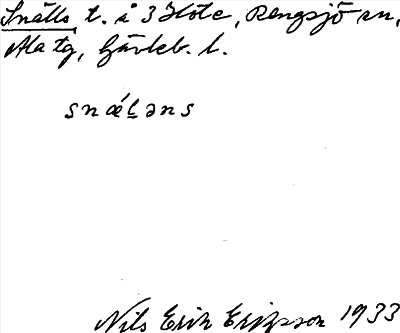 Snälls, t. i 3 Höle, Rengsjö sn,
Ala tg, Gävleb. l.
snǽḷəns
Nils Erik Eriksson 1933